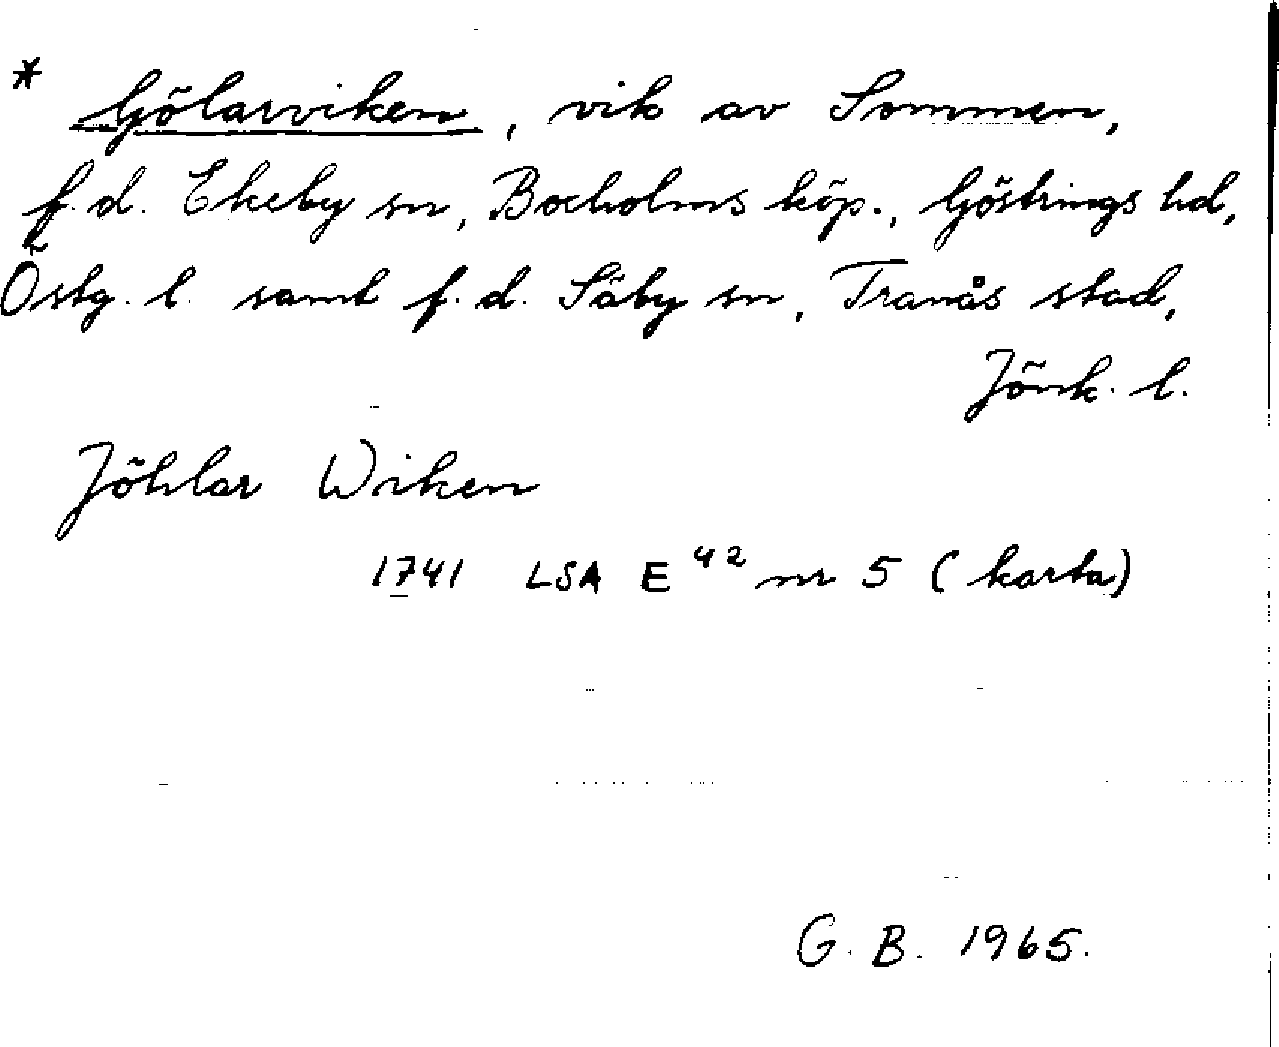 * Gölarviken, vik av Sommen,
f.d. Ekeby sn, Boxholms köp., Göstrings hd,
Östg. l. samt f.d. Säby sn, Tranås stad,
Jönk. l.
Jöhlar Wiken
1741 LSA E 42 nr 5 (karta)
G. B. 1965.